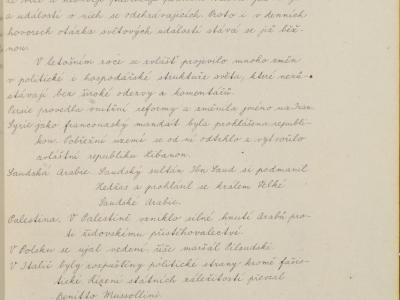 a událostí o nich se odehrávajících. Proto i v denních
hovorech otázka světových událostí stává se již běž-
nou.
V letošním roce se zvlášť projevilo mnoho změn
v politické i hospodářské struktuře světa, které nezů-
stávají bez široké odezvy a komentářů.
Persie provedla vnitřní reformy a změnila jméno na Iran.
Syrie jako francouzský mandát byla prohlášena republi-
kou. Pobřežní území se od ní odtrhlo a vytvořilo
zvláštní republiku Libanon.
Saudská Arabie. Saudský sultán Ibn Saud si podmanil
Hedžas a prohlásil se králem Velké
Saudské Arabie.
Palestina. V Palestině vzniklo silné hnutí Arabů pro-
ti židovskému přistěhovalectví.
V Polsku se ujal vedení říše maršál Pilsudski.
V Italii byly rozpuštěny politické strany kromě faši-
stické. Řízení státních záležitostí převzal
Benitto Mussollini.